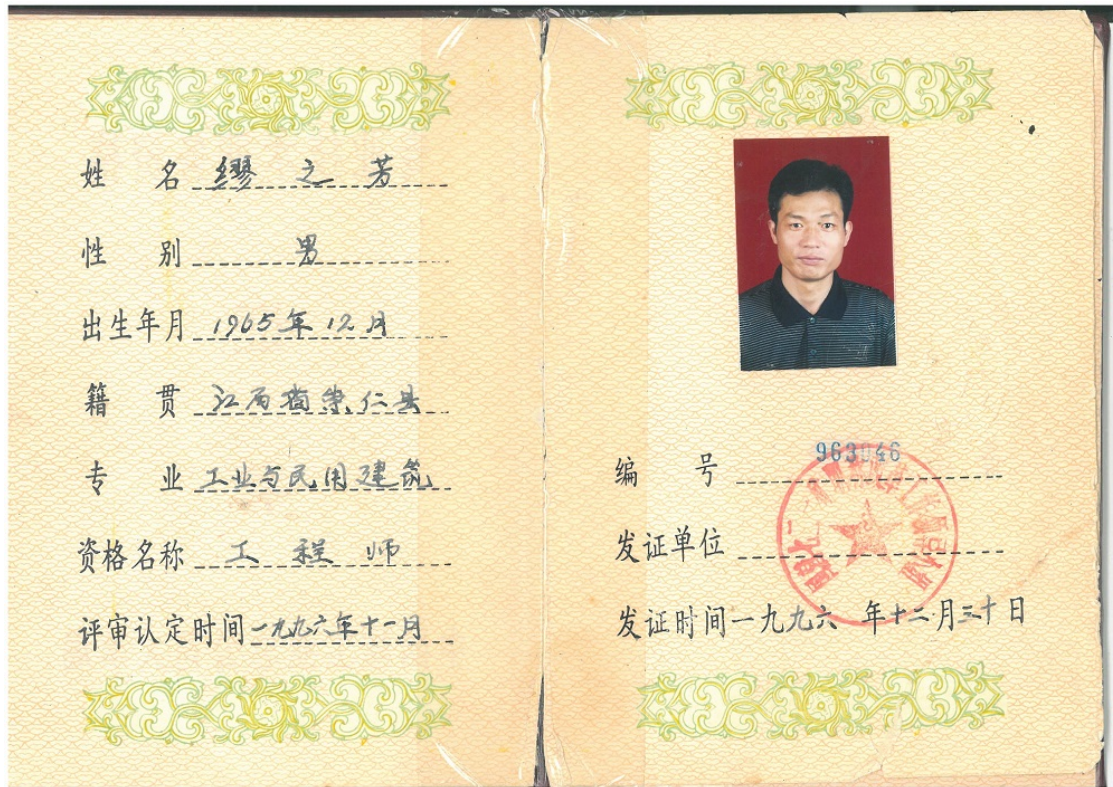 姓 名 缪之芳
性 别 男
出生年月 1965年12月
籍 贯 江西省崇仁县
专 业 工业与民用建筑
资格名称 工程师
评审认定时间 一九九六年十一月
编 号 963046
发证单位
发证时间 一九九六年十二月三十日